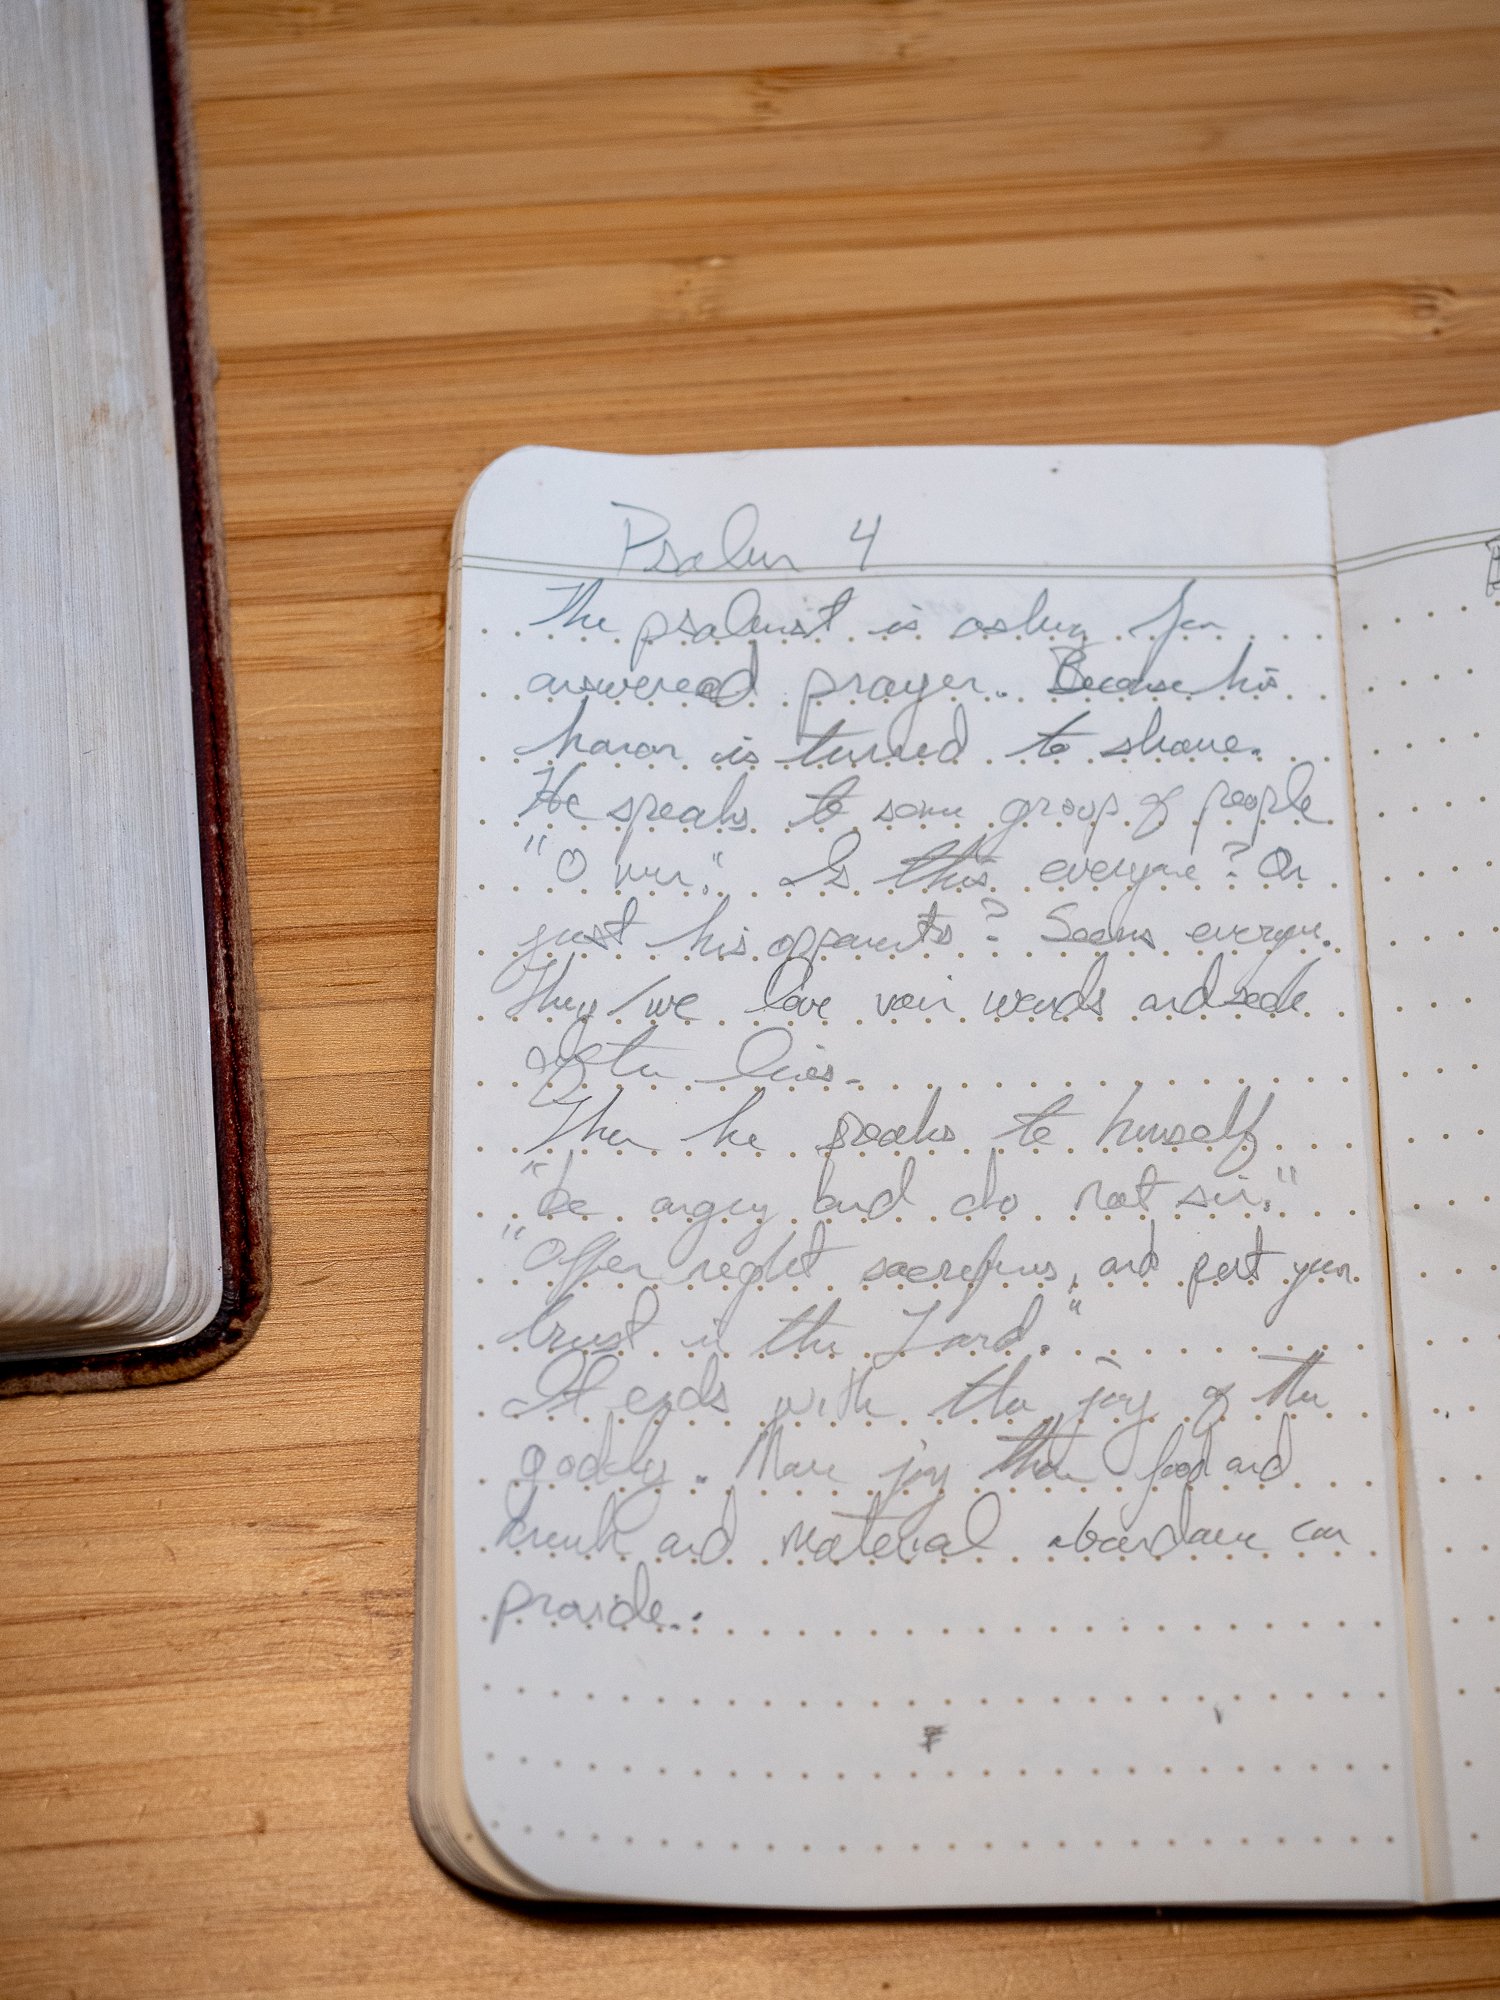 Psalm 4
The psalmist is asking for
answered prayer. Because his
honor is turned to shame.
He speaks to some group of people
"O men." Is this everyone? Or
just his opponents? Seems everyone.
They/we love vain words and seek
after lies.
Then he speaks to himself
"be angry and do not sin."
"Offer right sacrifices, and put your
trust in the Lord."
It ends with the joy of the
godly. More joy than food and
drink and material abundance can
provide.